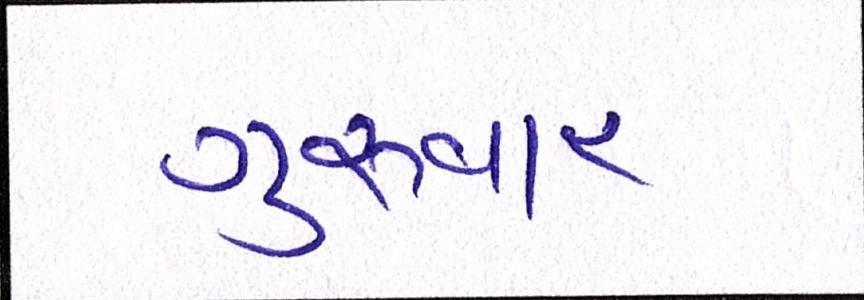 ગુરુવાર